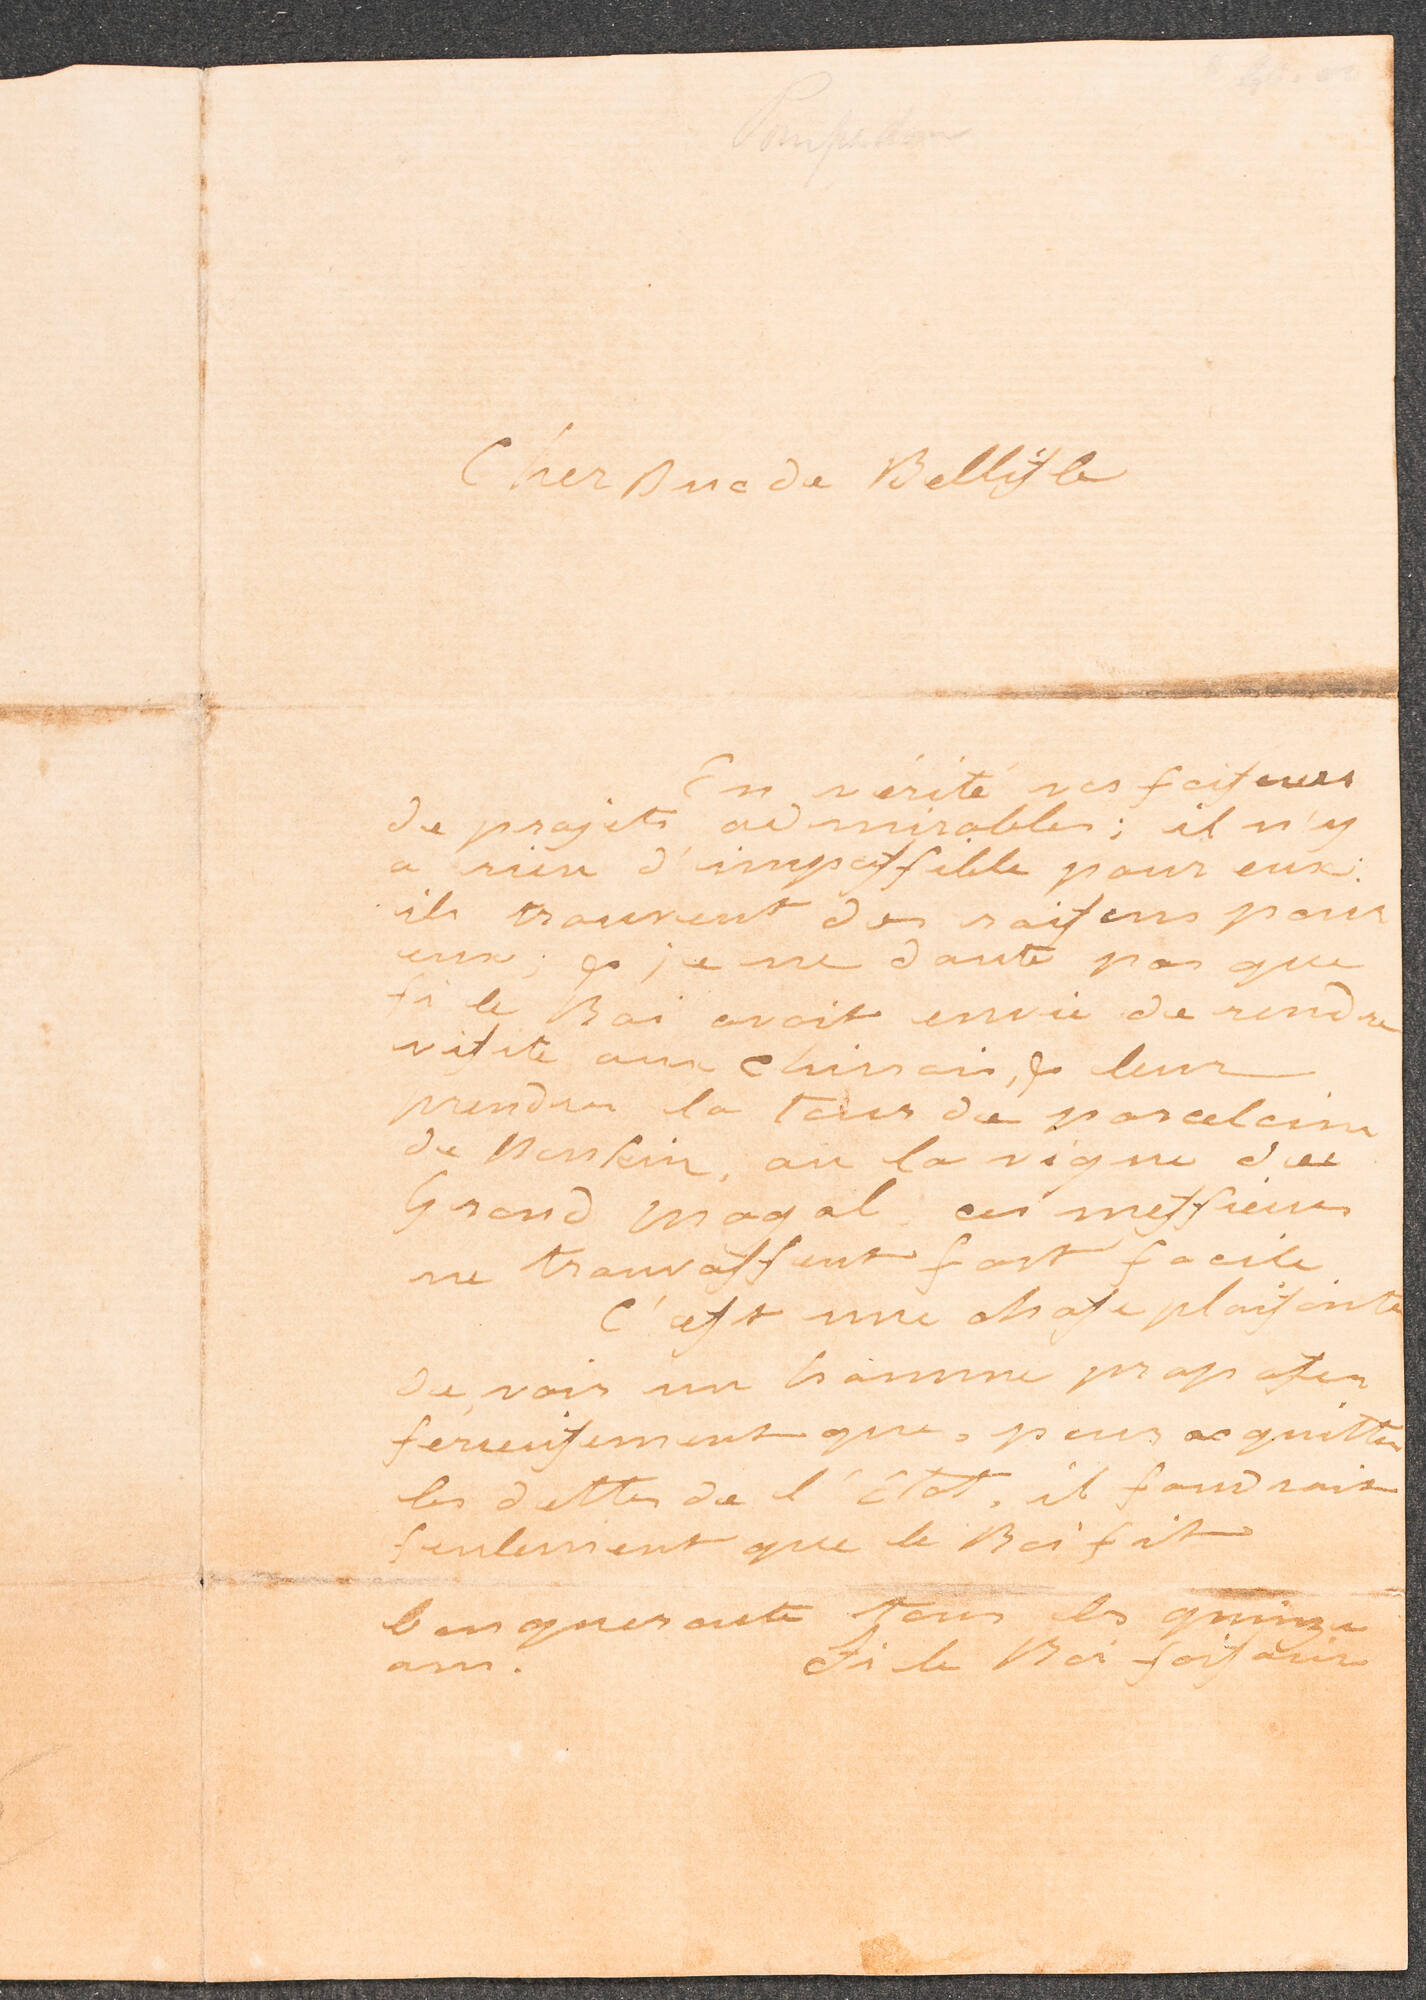 Pompadour
Cher Duc de Bellisle
En vérité vos faiseurs
de projets admirables; il n'y
a rien d'impossible pour eux:
ils trouvent des raisons pour
eux; & je ne doute pas que
si le Roi avoit envie de rendre
visite aux Chinois, & leur
prendre la tour de porcelaine
de Nankin, ou la vigne du
Grand Mogol ces messieurs
ne trouvassent fort facile
C'est une chose plaisante
de voir un homme proposer
sérieusement que, pour acquitter
les dettes de l'état, il faudroit
seulement que le Roi fit
banqueroute tous les quinze
ans. Si le Roi faisoit